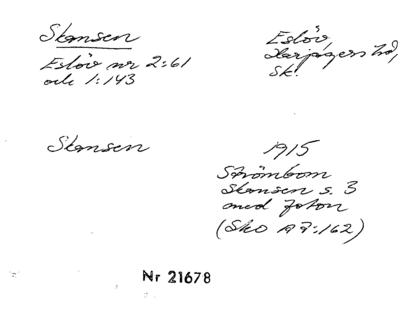 Skansen
Eslöv nr 2:61
och 1:143
Eslöv,
Harjagers hd,
Sk.
Skansen
1915
Strömbom
Skansen s. 3
med foton
(Sko A 7:162)
Nr 21678